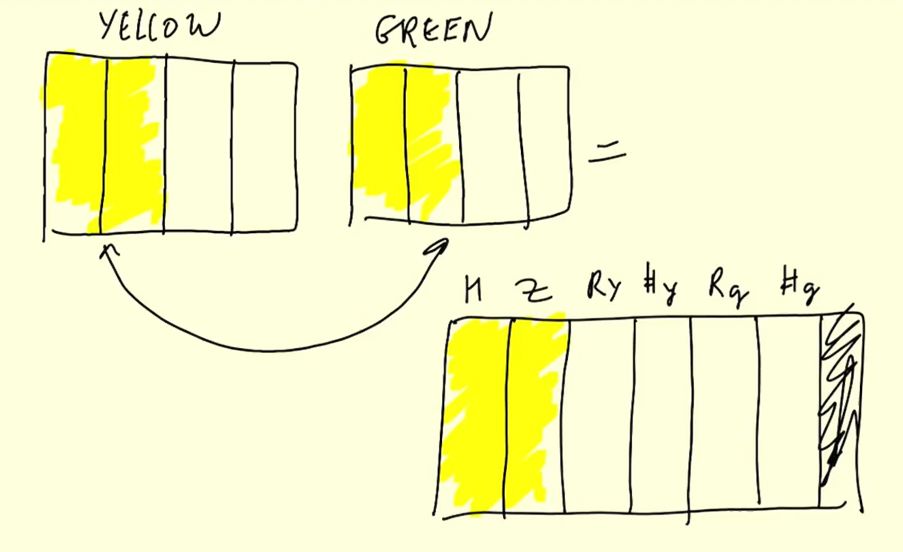 YELLOW GREEN
=
M Z Ry Hy Rg Hg